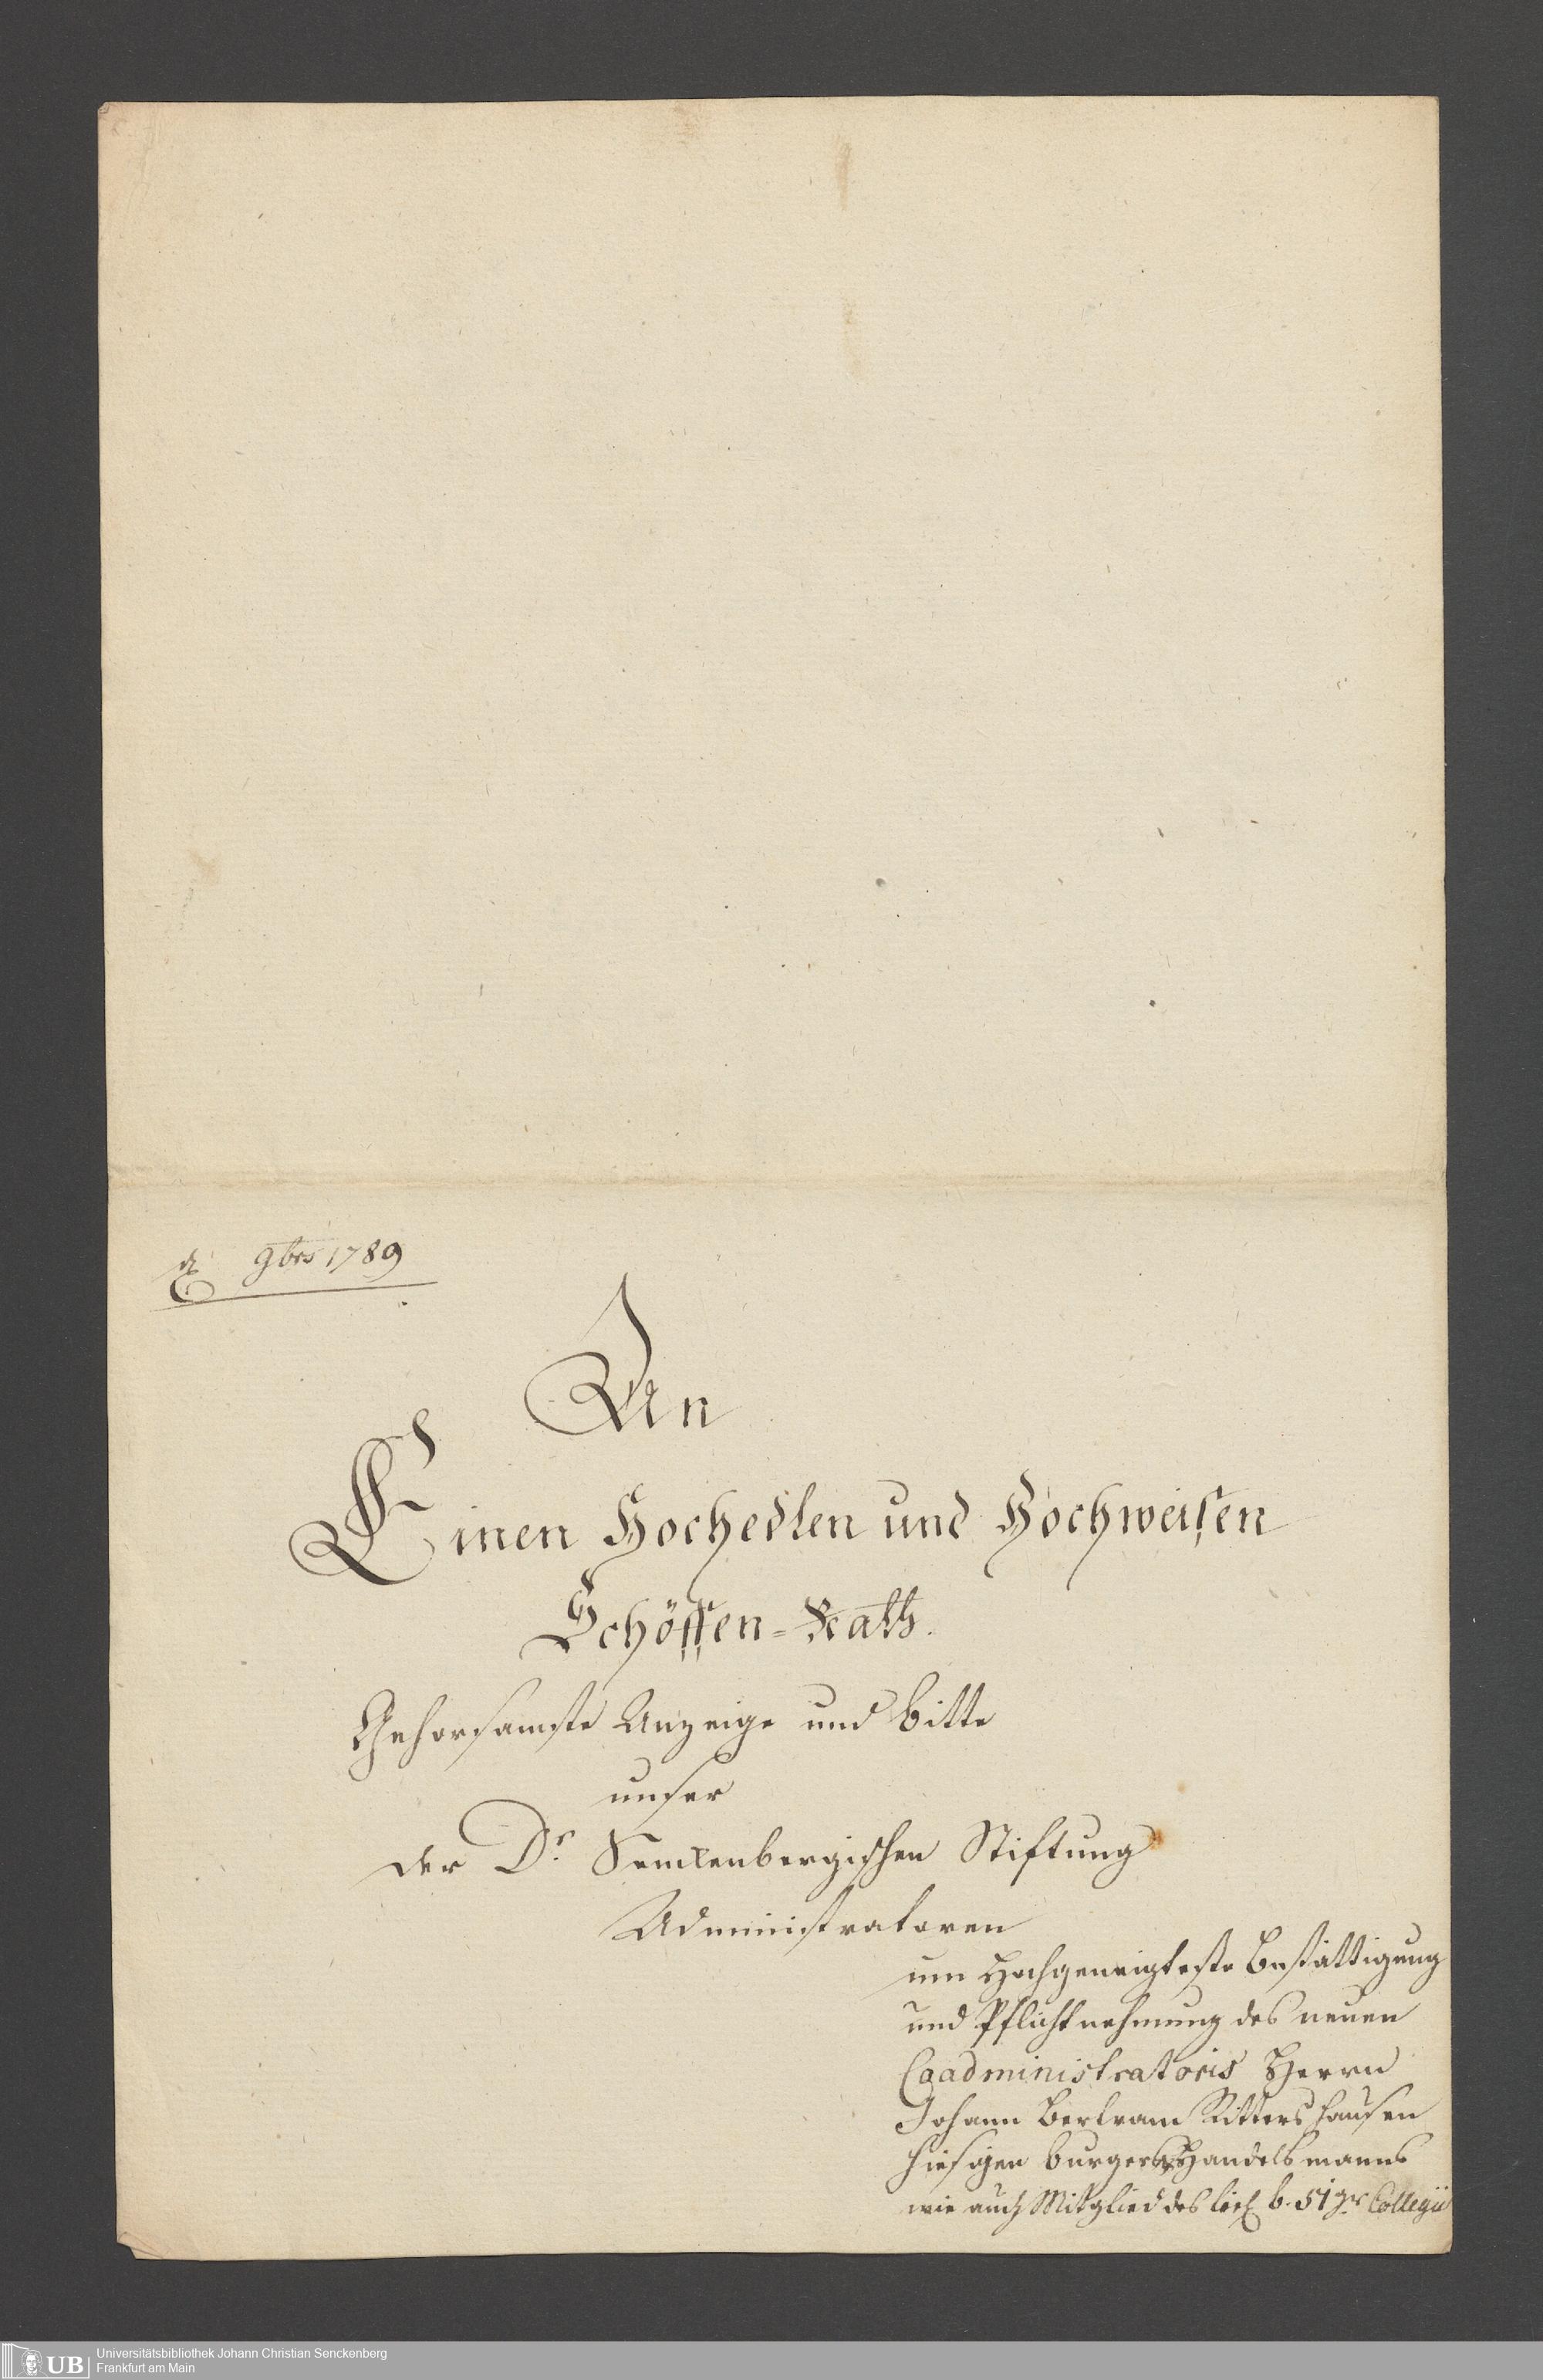 d. 9brs 1789
An
Einen Hochedlen und Hochweisen
Schöffen-Rath.
Gehorsamste Anzeige und Bitte
unser
der Dr. Senckenbergischen Stiftung
Administratoren
um Hochgeneigteste Bestättigung
und Pflichtnehmung des neuen
Coadministratoris Herrn
Johann Bertram Rittershausen
hiesigen Burgers Handelsmanns
wie auch Mitglied des löbl. b. 51gr Collegii
UB Universitätsbibliothek Johann Christian Senckenberg
Frankfurt am Main